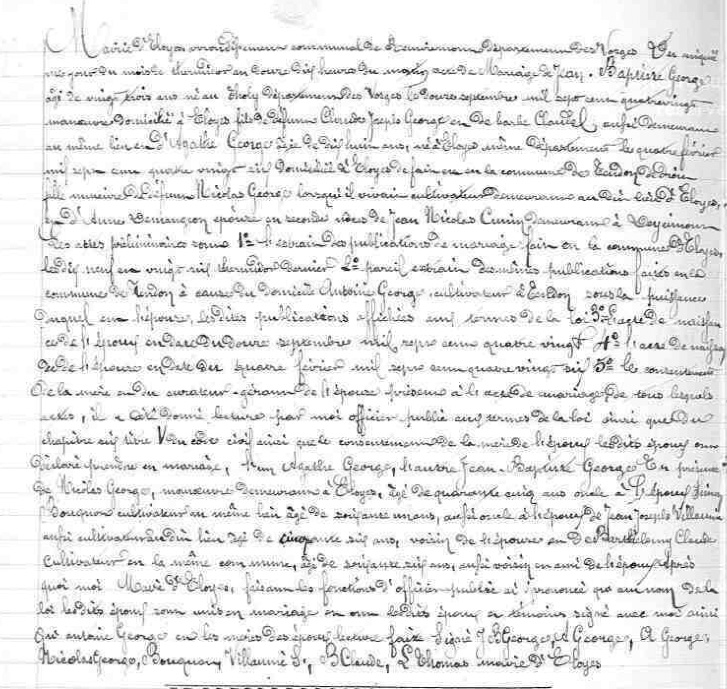 Mairie d'Eloyes arrondissement communal de Remiremont département des Vosges Du cinqui
me jour du mois de thermidor an douze dix heures du matin acte de Mariage de Jean-Baptiste George
agé de vingt trois ans né au Tholy département des Vosges le douze septembre mil sept cent quatre vingt
manœuvre domicilié à Eloyes fils de défunt Claude Joseph George et de barbe Claudel, aussi demeurant
au même lieu et d'Agathe George agée de dix huit ans, née à Eloyes même département le quatre février
mil sept cent quatre vingt six domiciliée à Eloyes de fait et en la commune de Tendon de droit
fille mineure de défunt Nicolas George lorsqu'il vivait cultivateur demeurant au dit lieu d'Eloyes,
et d'Anne Demangeon épouse en secondes noces de Jean Nicolas Cunin demeurant à
Les actes préliminaires sont 1° l'extrait des publications de mariage fait en la commune d'Eloyes
les dix neuf et vingt six thermidor dernier 2° pareil extrait des mêmes publications faites en la
commune de Tendon à cause du domicile Antoine George, cultivateur à Tendon sous la puissance
duquel est l'épouse, lesdites publications affichées aux termes de la loi 3° l'acte de naissan
ce de l'époux en date du douze septembre mil sept cent quatre vingt 4° l'acte de naissan
ce de l'épouse en date du quatre février mil sept cent quatre vingt six 5° le consentement
de la mère et du curateur-gérant de l'épouse présens à l'acte de mariage, de tous lesquels
actes, il a été donné lecture par moi officier public aux termes de la loi ainsi que du
chapitre six titre V du code civil ainsi que le consentement de la mère de l'époux lesdits époux ont
déclaré prendre en mariage, l'un Agathe George, l'autre Jean-Baptiste George En présence
de Nicolas George, manœuvre demeurant à Eloyes, agé de quarante cinq ans oncle à l'époux
Bouquon cultivateur au même lieu agé de soixante un ans, aussi oncle à l'époux, de Jean Joseph Villaumé
aussi cultivateur audit lieu agé de cinquante six ans, voisin de l'épouse et de Barthelemy Claude
cultivateur en la même commune, agé de soixante six ans, aussi voisin et ami de l'époux après
quoi moi Maire d'Eloyes, faisant les fonctions d'officier public ai prononcé qu'au nom de la
loi lesdits époux sont unis en mariage et ont lesdits époux et témoins signé avec moi ainsi
qu'antoine George et les mères des époux lecture faite Signé J B George, A George, A George,
Nicolas George, Bouquon, Villaumé S., B Claude, L Thomas maire d'Eloyes